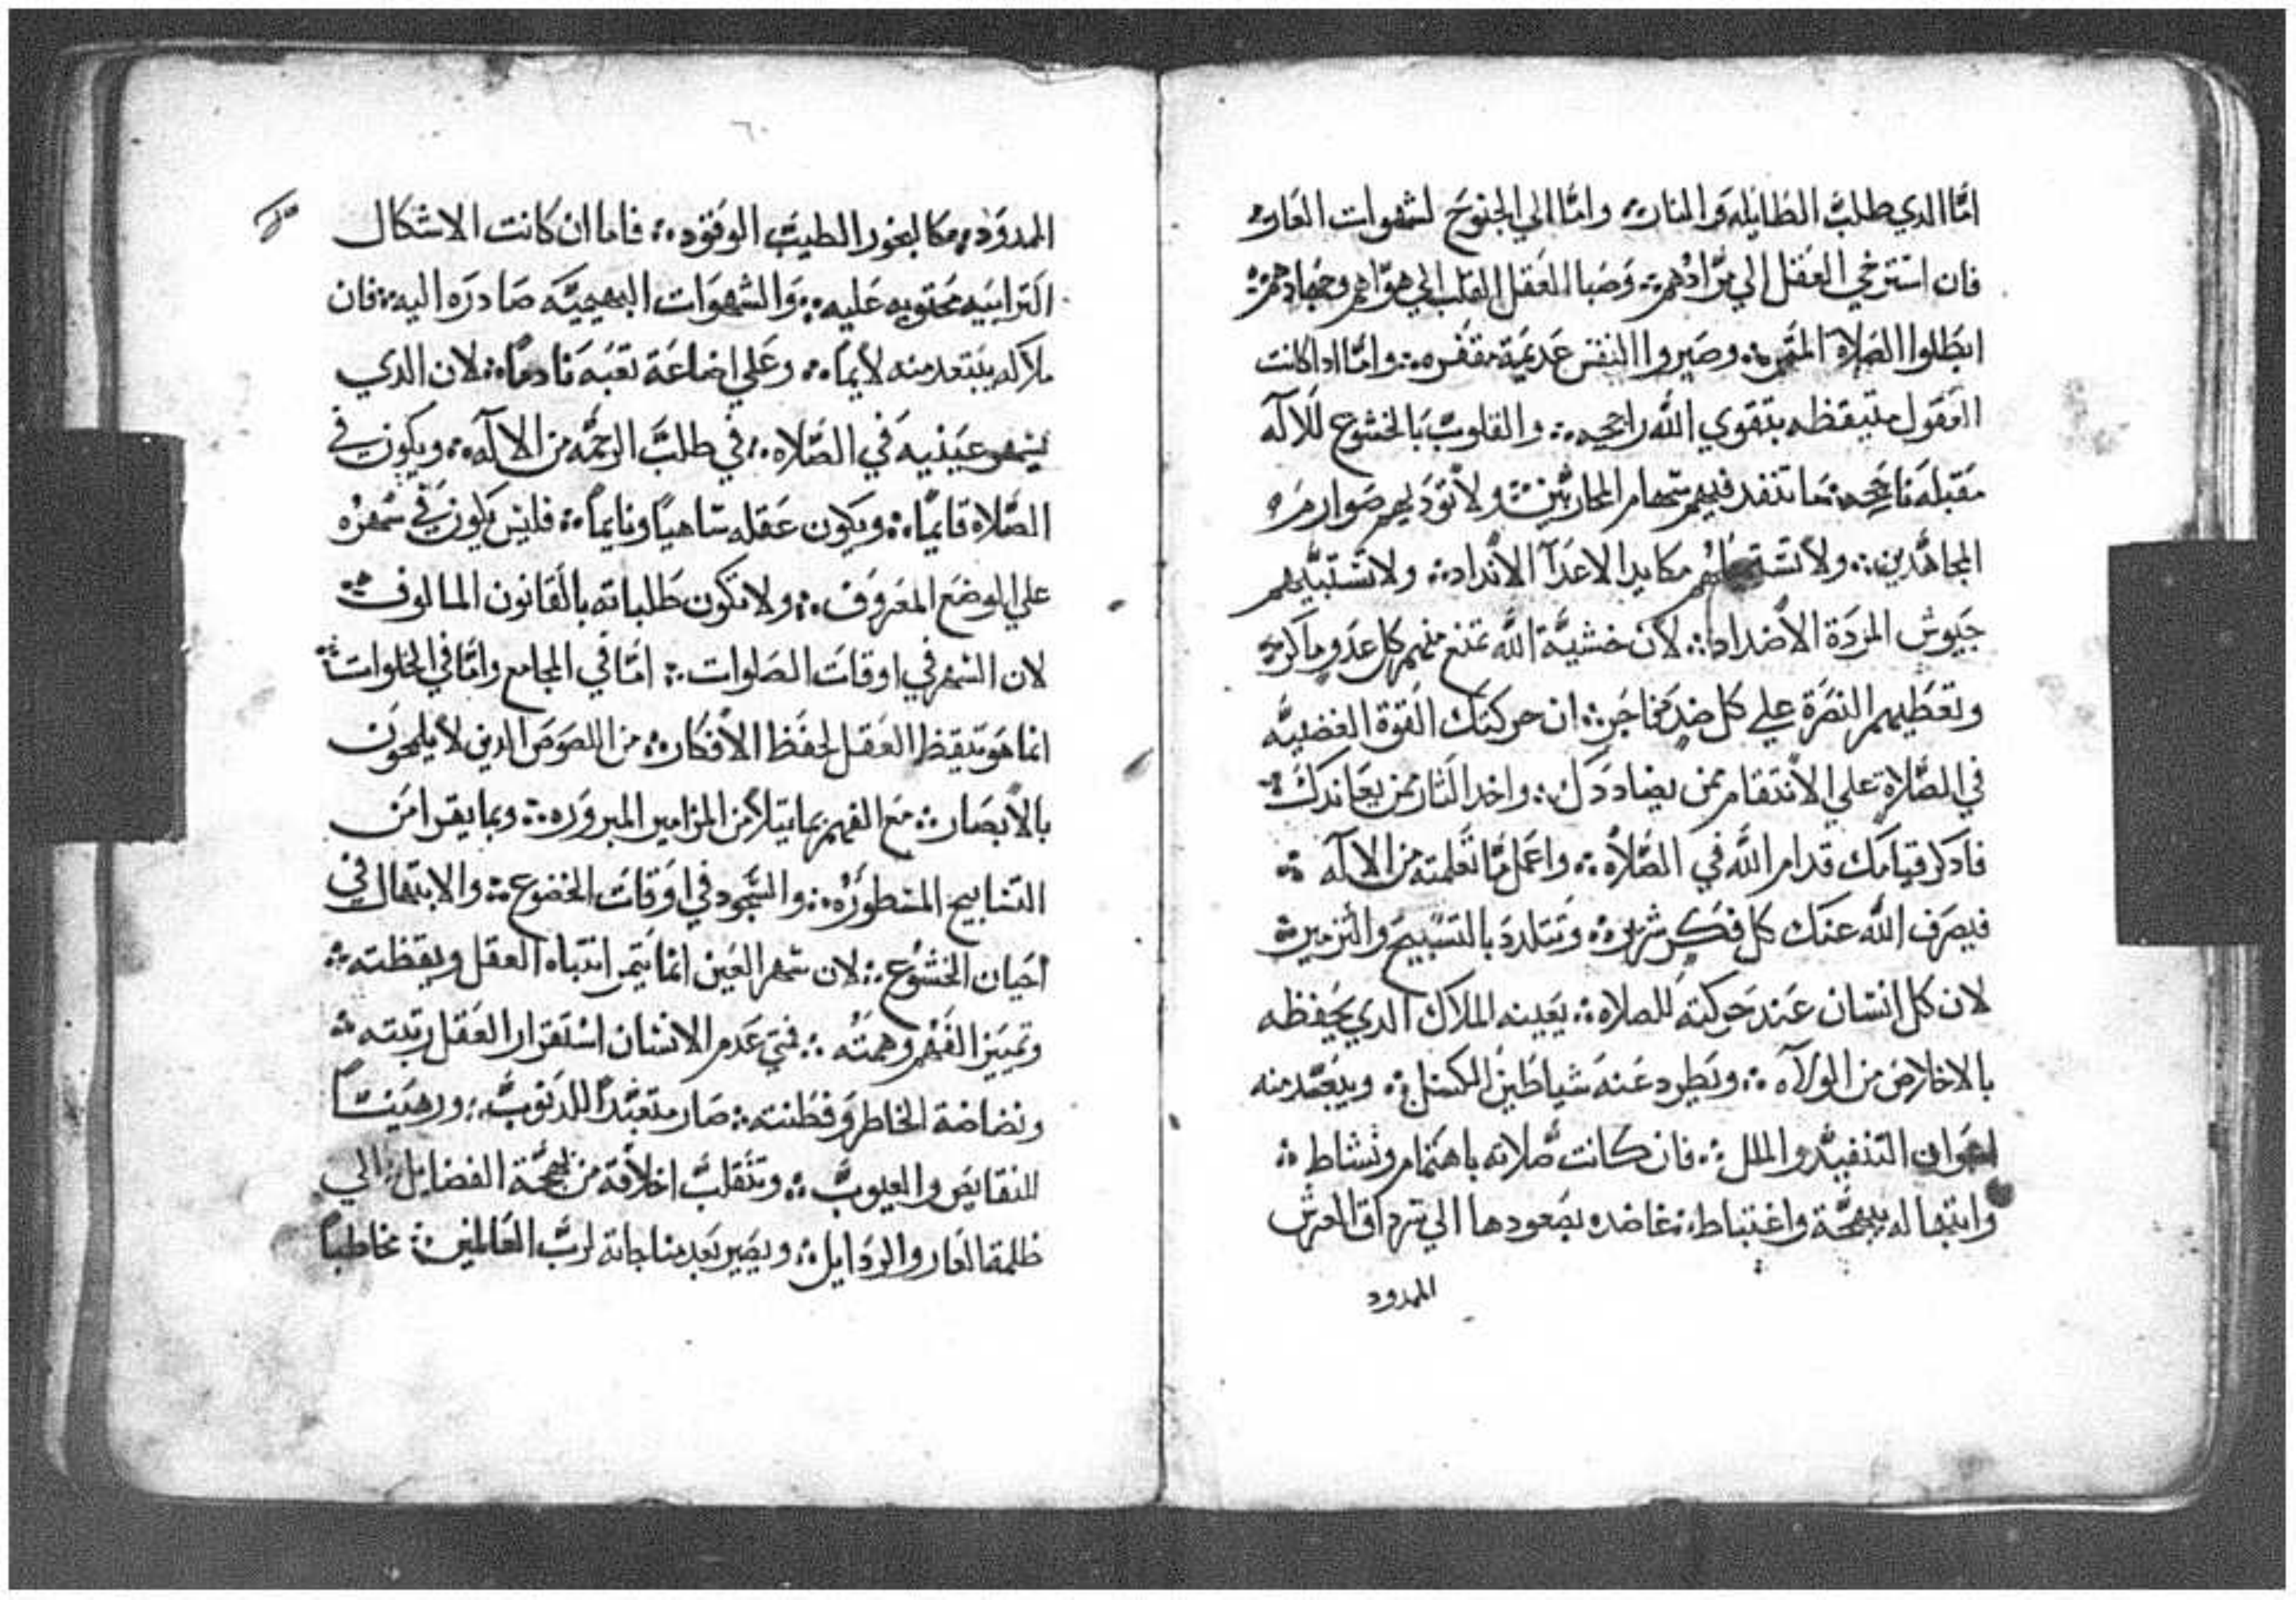 امّا الدي طلب الطايله والمناره وامّا الي الجنوح لشهوات العاره
فان استرخي العقل الي مرادهم ⁘ وصبا العقل القلب الي هواهم وجهادهم ⁘
ابطلوا الصلاة المثمره ⁘ وصيروا النفس عديمة مقفره ⁘ وامّا ادا كانت
العقول متيقظه بتقوي الله راجحه ⁘ والقلوب بالخشوع للاله
مقبله ناجحه ⁘ ما تنفد فيهم سهام المحاربين ⁘ ولا توديهم صوارم
المجاهدين ⁘ ولا مكايد الاعدآ الانداد ⁘ ولا تشتبيهم
جيوش المردة الاضداد ⁘ لان خشية الله تمنع منهم كل عدو ماكر ⁘
وتعطيهم النصرة علي كل ضد فاجر ⁘ ان حركتك القوة الغضبيه
في الصلاة علي الانتقام ممن يضاددك ⁘ واخد الثار ممن يعاندك ⁘
فادكر قيامك قدام الله في الصلاه ⁘ واعمل ما تعلمته من الاله ⁘
فيصرف الله عنك كل فكر شرير ⁘ وتتلدد بالتسبيح والتزمير ⁘
لان كل انسان عند حركته للصلاه ⁘ يعينه الملاك الدي يحفظه
بالاخلاص من الولاه ⁘ ويطرد عنه شياطين الكسل ⁘ ويبعد منه
اعوان التنفيد والملل ⁘ فان كانت صلاته باهتمام ونشاط ⁘
وابتهاله ببهجة واغتباط ⁘ بصعودها الي سرداق العرش
الممدود
٦٠
الممدود ⁘ كالبخور الطيب الوقود ⁘ فاما ان كانت الاشكال
الترابيه محتويه عليه ⁘ والشهوات البهيمية صادره اليه ⁘ فان
ملاكه يبتعد منه لايماً ⁘ وعلي اضاعة تعبه نادماً ⁘ لان الدي
يسهر عينيه في الصلاه ⁘ في طلب الرحمه من الاله ⁘ ويكون في
الصلاه قايماً ⁘ ويكون عقله ساهياً ونايماً ⁘ فليس يكون في سهره
علي الوضع المعروف ⁘ ولا تكون طلباته بالقانون المالوف ⁘
لان السهر في اوقات الصلوات ⁘ امّا في المجامع وامّا في الخلوات ⁘
انما هو تيقظ العقل لحفظ الافكار ⁘ من اللصوص الدين لا يلمحون
بالابصار ⁘ مع الفهم بما يتلا من المزامير المبروره ⁘ وبما يقرا من
التسابيح المسطوره ⁘ والسجود في اوقات الخضوع ⁘ والابتهال في
احيان الخشوع ⁘ لان سهر العين انما يتم انتباه العقل ويقظته ⁘
وتمييز الفهم وهمته ⁘ فمتي عدم الانسان استقرار العقل رتبته ⁘
ونضاضة الخاطر وفطنته ⁘ صار متعبداً للدنوب ⁘ ورهيناً
للنقايص والعيوب ⁘ وتنقلب اخلاقه من بهجة الفضايل ⁘ الي
ظلمة العار والردايل ⁘ ويصير بعد مناجاته لرب العالمين ⁘ مخاطباً